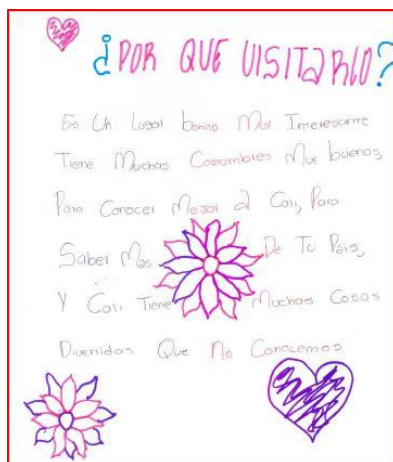 ¿POR QUE VISITARLO?
Es Un Lugar bonito Mui Interesante
Tiene Muchas Costumbres Mui buenas,
Para Conocer Mejor a Cali, Para
Saber Mas De Tu Pais,
Y Cali Tiene Muchas Cosas
Divertidas Que No Conocemos